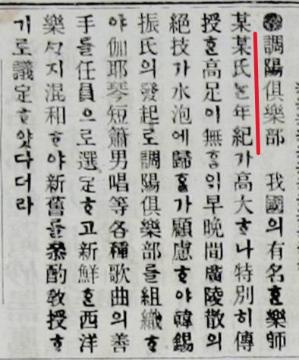 調陽俱樂部 我國의有名ᄒᆞᆫ樂師
某某氏ᄂᆞᆫ年紀가高大ᄒᆞ나特別히傳
授ᄒᆞᆫ高足이無ᄒᆞᆷᄋᆡ早晚間廣陵散의
絶技가水泡에歸ᄒᆞᆯ가顧慮ᄒᆞ야韓錫
振氏의發起로調陽俱樂部를組織ᄒᆞ
야伽耶琴短簫男唱等各種歌曲의善
手를任員으로選定ᄒᆞ고新鮮ᄒᆞᆫ西洋
樂ᄭᆞ지混和ᄒᆞ야新舊를叅酌敎授ᄒᆞ
기로議定ᄒᆞ얏다더라